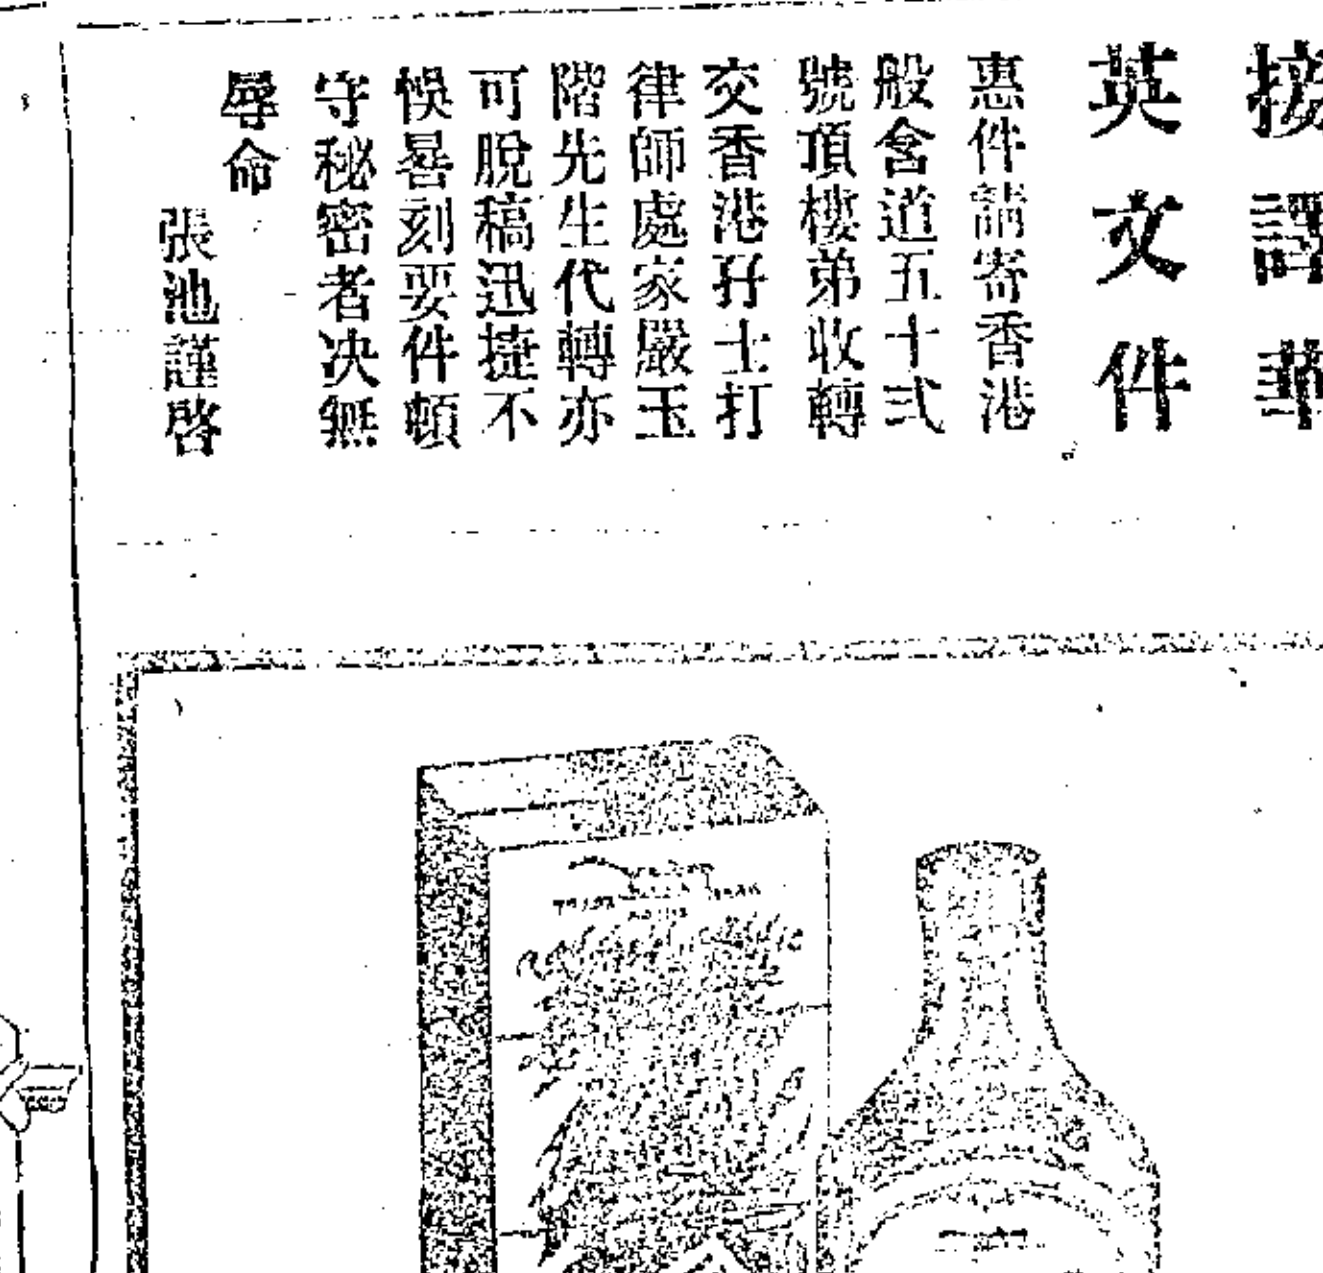 接譯華
英文件
惠件請寄香港
般含道五十弍
號頂樓弟收轉
交香港孖士打
律師處家嚴玉
階先生代轉亦
可脫稿迅捷不
悞晷刻要件頓
守秘密者决無
辱命
張池謹啓